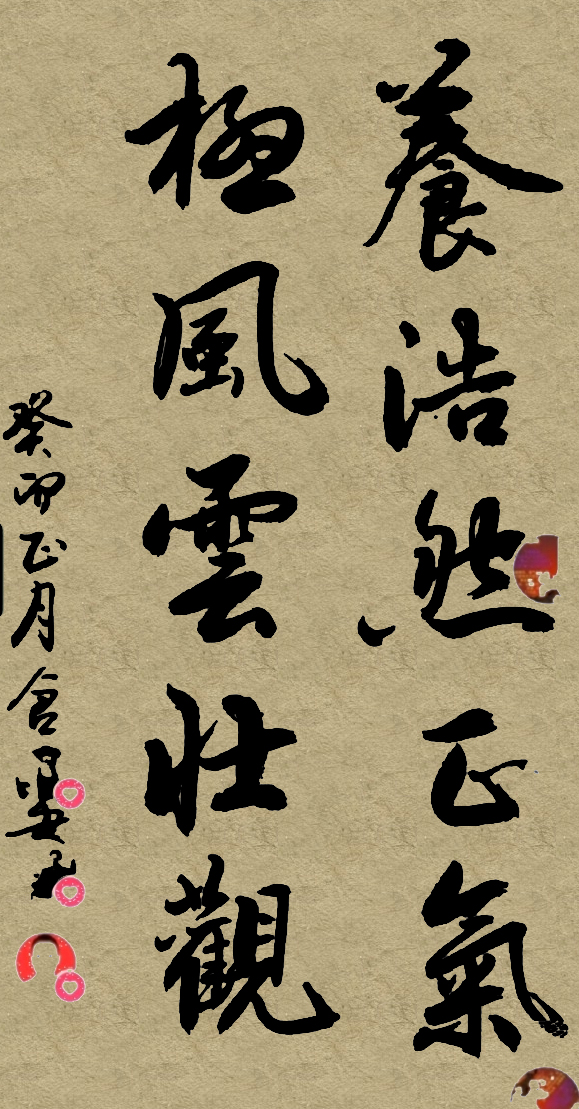 養浩然正氣
極風雲壯觀
癸卯正月